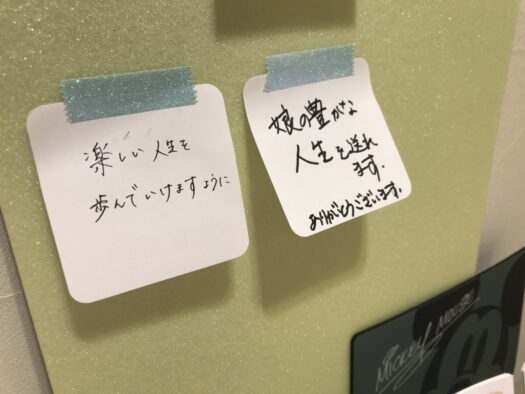 楽しい人生を
歩んでいけますように
娘の豊かな
人生を送れ
ます.
ありがとうございます.
MICKEY MOUSE